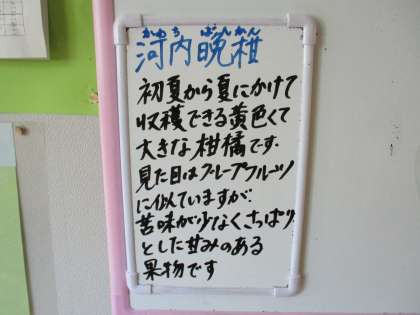 かわちばんかん
河内晩柑
初夏から夏にかけて
収穫できる黄色くて
大きな柑橘です。
見た目はグレープフルーツ
に似ていますが、
苦味が少なくさっぱり
とした甘みのある
果物です